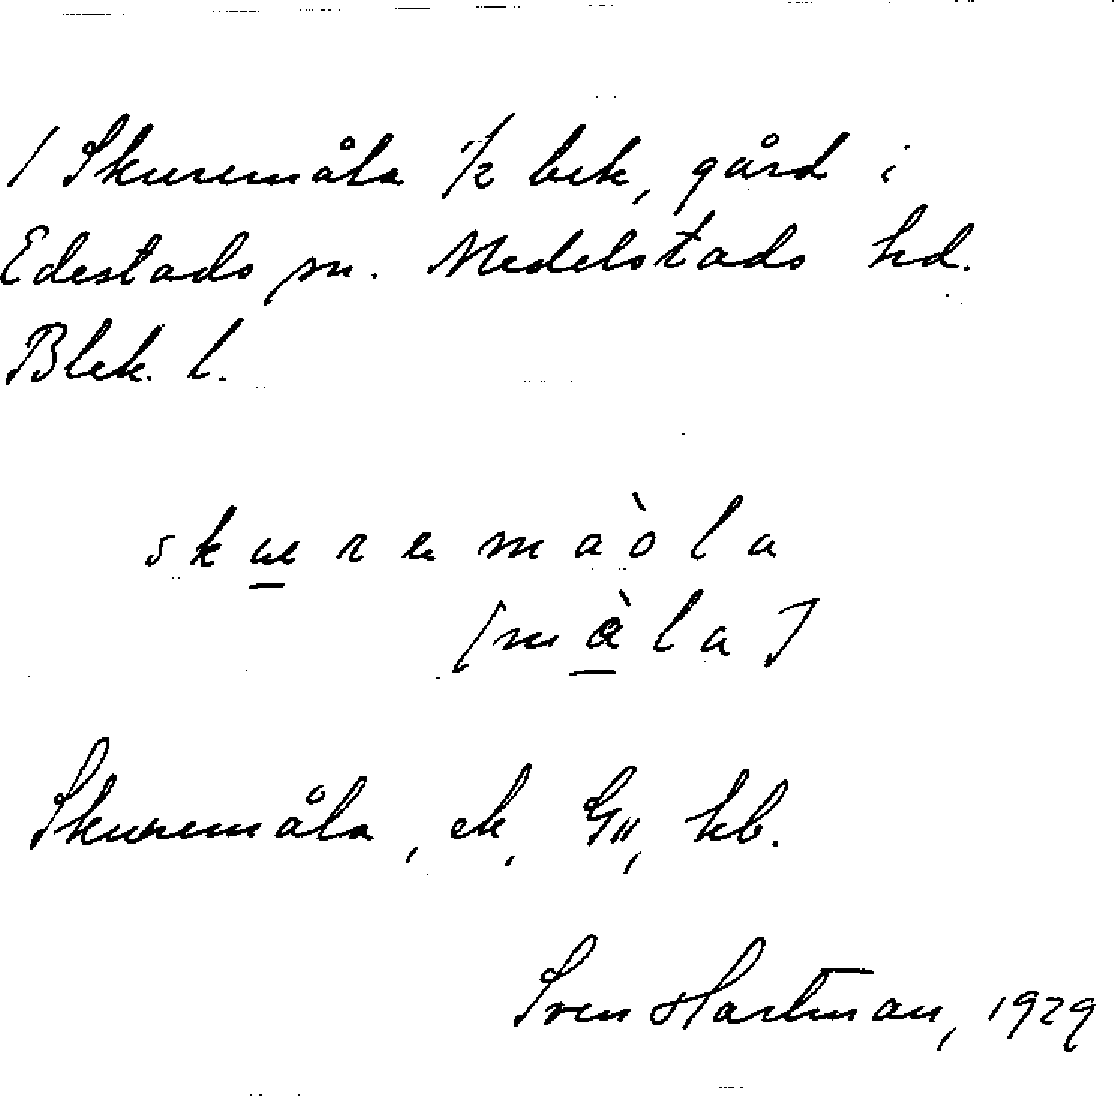 / Skuremåla 1/2 bek, gård i
Edestads sn. Medelstads hd.
Blek. l.
skuremaòla
[màla]
Skuremåla, ek, G11, kb.
Sven Hartman, 1929